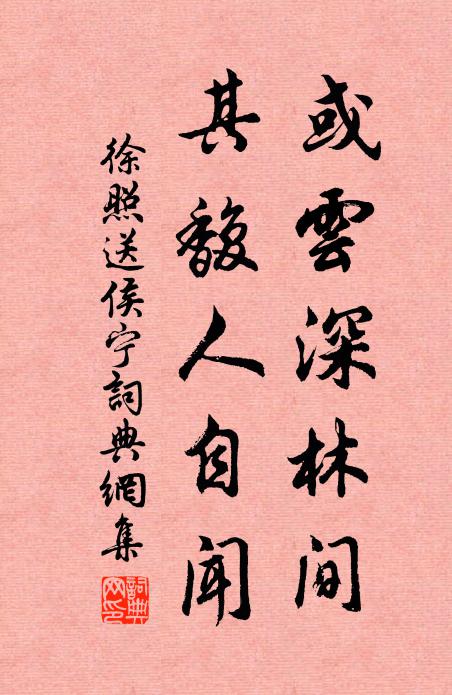 或雲深林间
其馥人自闻
徐照送侯宁詞典網集
詞典网印